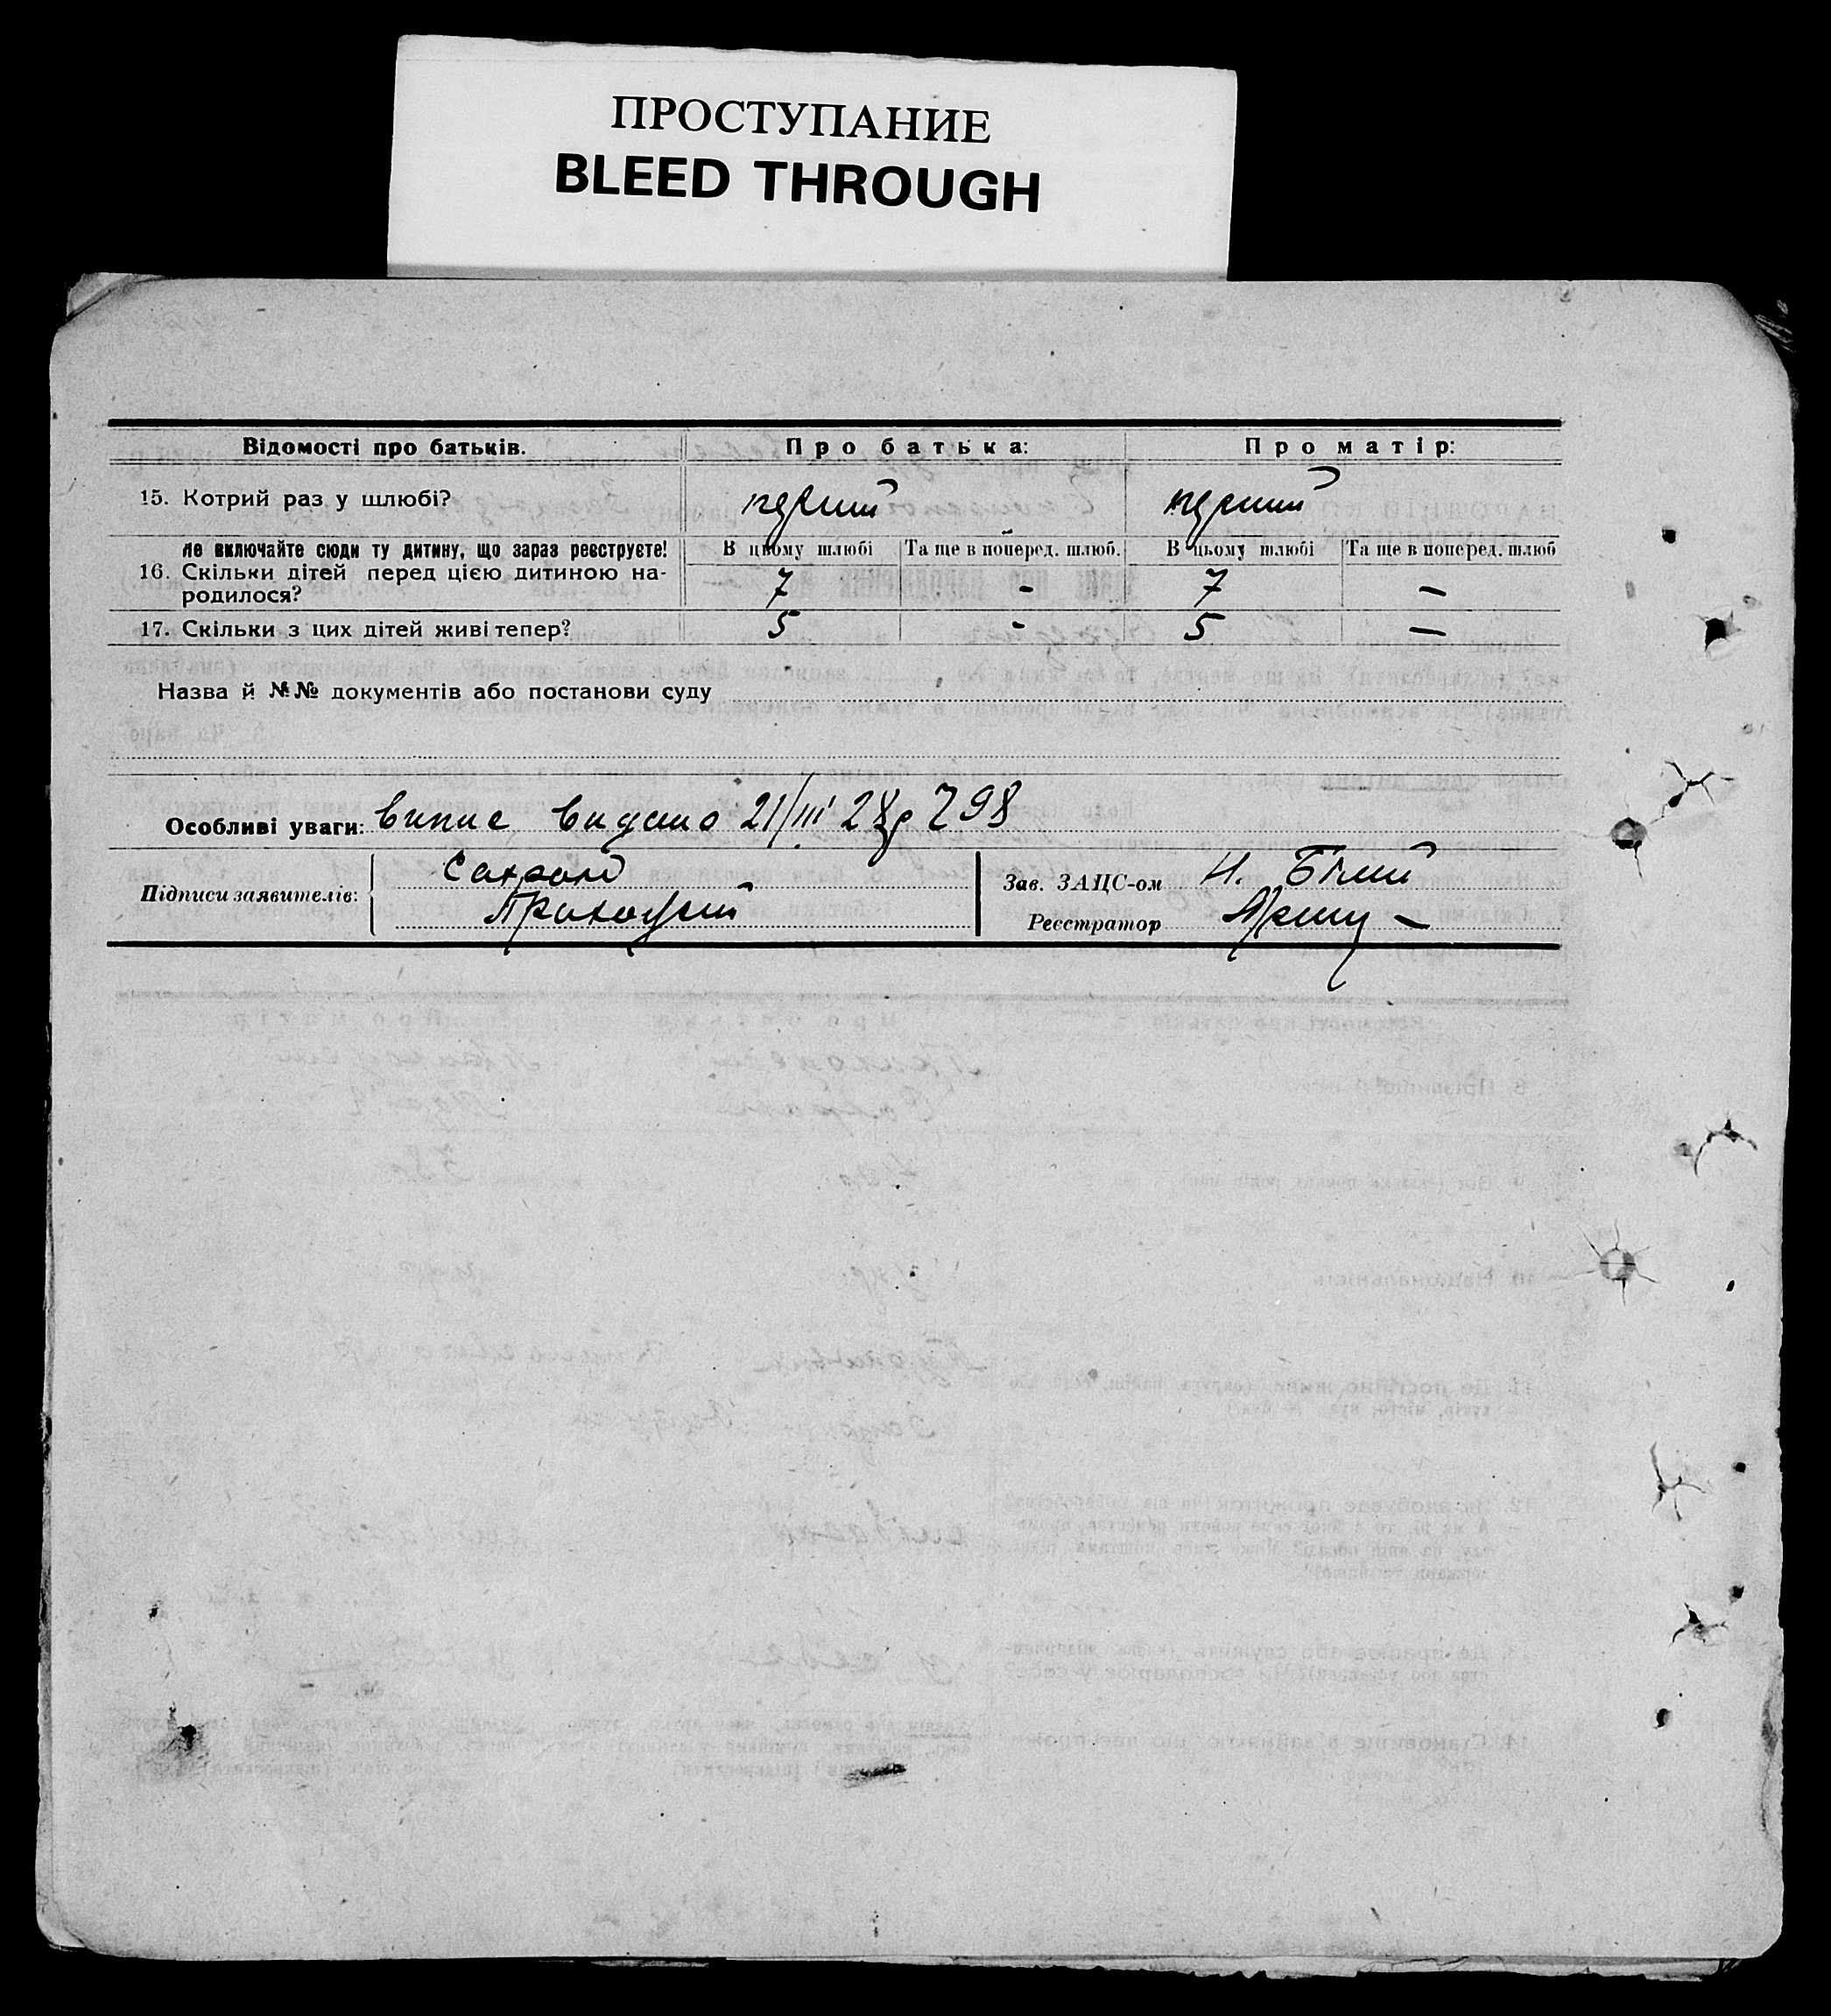 ПРОСТУПАНИЕ
BLEED THROUGH
Відомості про батьків. Про батька: Про матір:
15. Котрий раз у шлюбі? перший перший
Не включайте сюди ту дитину, що зараз реєструєте! В цьому шлюбі Та ще в поперед. шлюб. В цьому шлюбі Та ще в поперед. шлюб
16. Скільки дітей перед цією дитиною на-
родилося? 7 - 7 —
17. Скільки з цих дітей живі тепер? 5 - 5 —
Назва й №№ документів або постанови суду
Особливі уваги: випис видано 21/III 28р 798
Підписи заявителів: Сахрон Зав. ЗАЦС-ом Н. Білий
Приходький Реєстратор